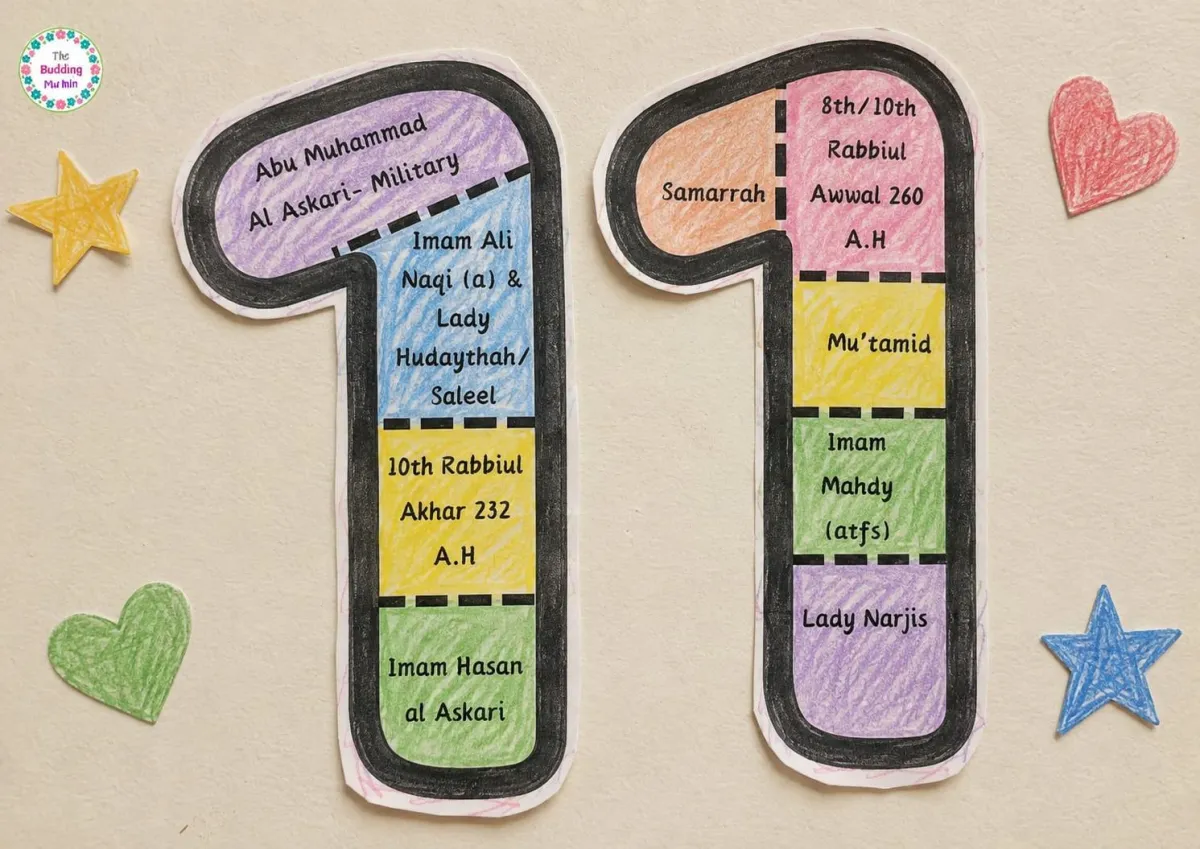 The
Budding
Mu'min
Abu Muhammad
Al Askari- Military
Imam Ali
Naqi (a) &
Lady
Hudaythah/
Saleel
10th Rabbiul
Akhar 232
A.H
Imam Hasan
al Askari
Samarrah
8th/10th
Rabbiul
Awwal 260
A.H
Mu'tamid
Imam
Mahdy
(atfs)
Lady Narjis